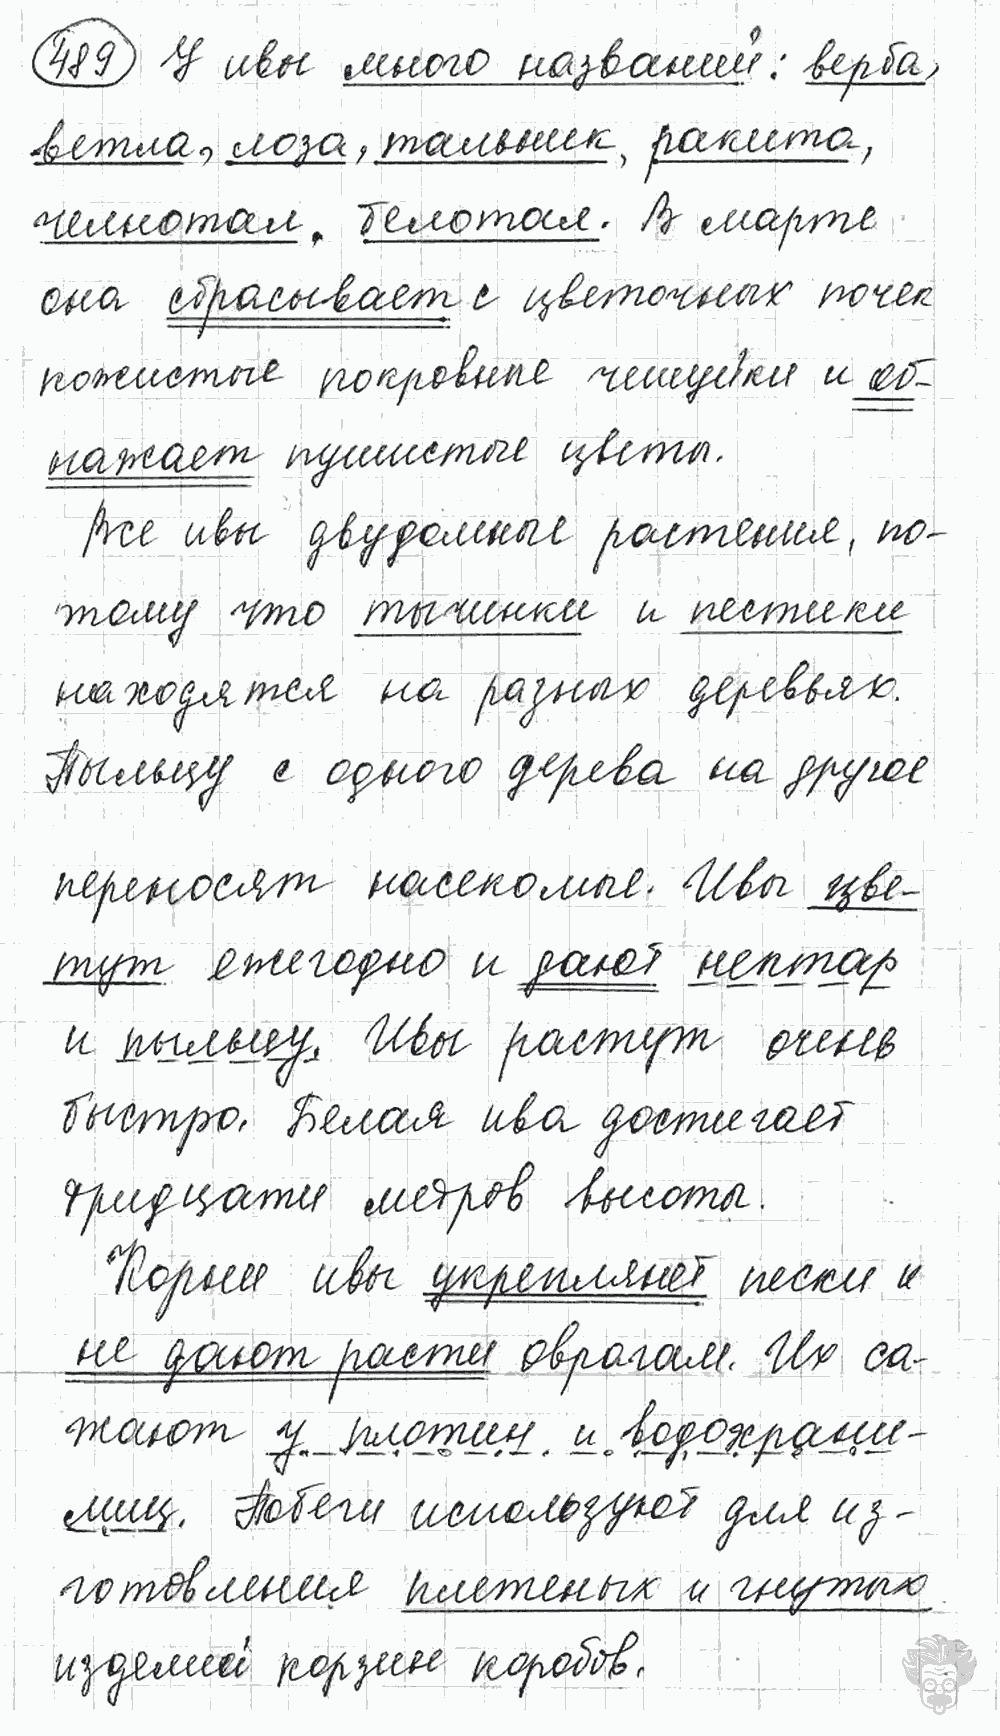 489 У ивы много названий: верба,
ветла, лоза, тальник, ракита,
челнотал, белотал. В марте
она сбрасывает с цветочных почек
кожистые покровные чешуйки и об-
нажает пушистые цветы.
Все ивы двудомные растения, по-
тому что тычинки и пестики
находятся на разных деревьях.
Пыльцу с одного дерева на другое
переносят насекомые. Ивы цве-
тут ежегодно и дают нектар
и пыльцу. Ивы растут очень
быстро. Белая ива достигает
тридцати метров высоты.
Корни ивы укрепляют пески и
не дают расти оврагам. Их са-
жают у плотин и водохрани-
лищ. Побеги используют для из-
готовления плетеных и гнутых
изделий корзин коробов.